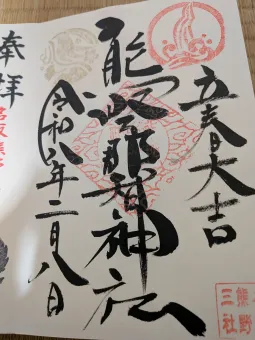 立春大吉
熊野那智神社
令和六年二月八日
奉拝
熊野
三社